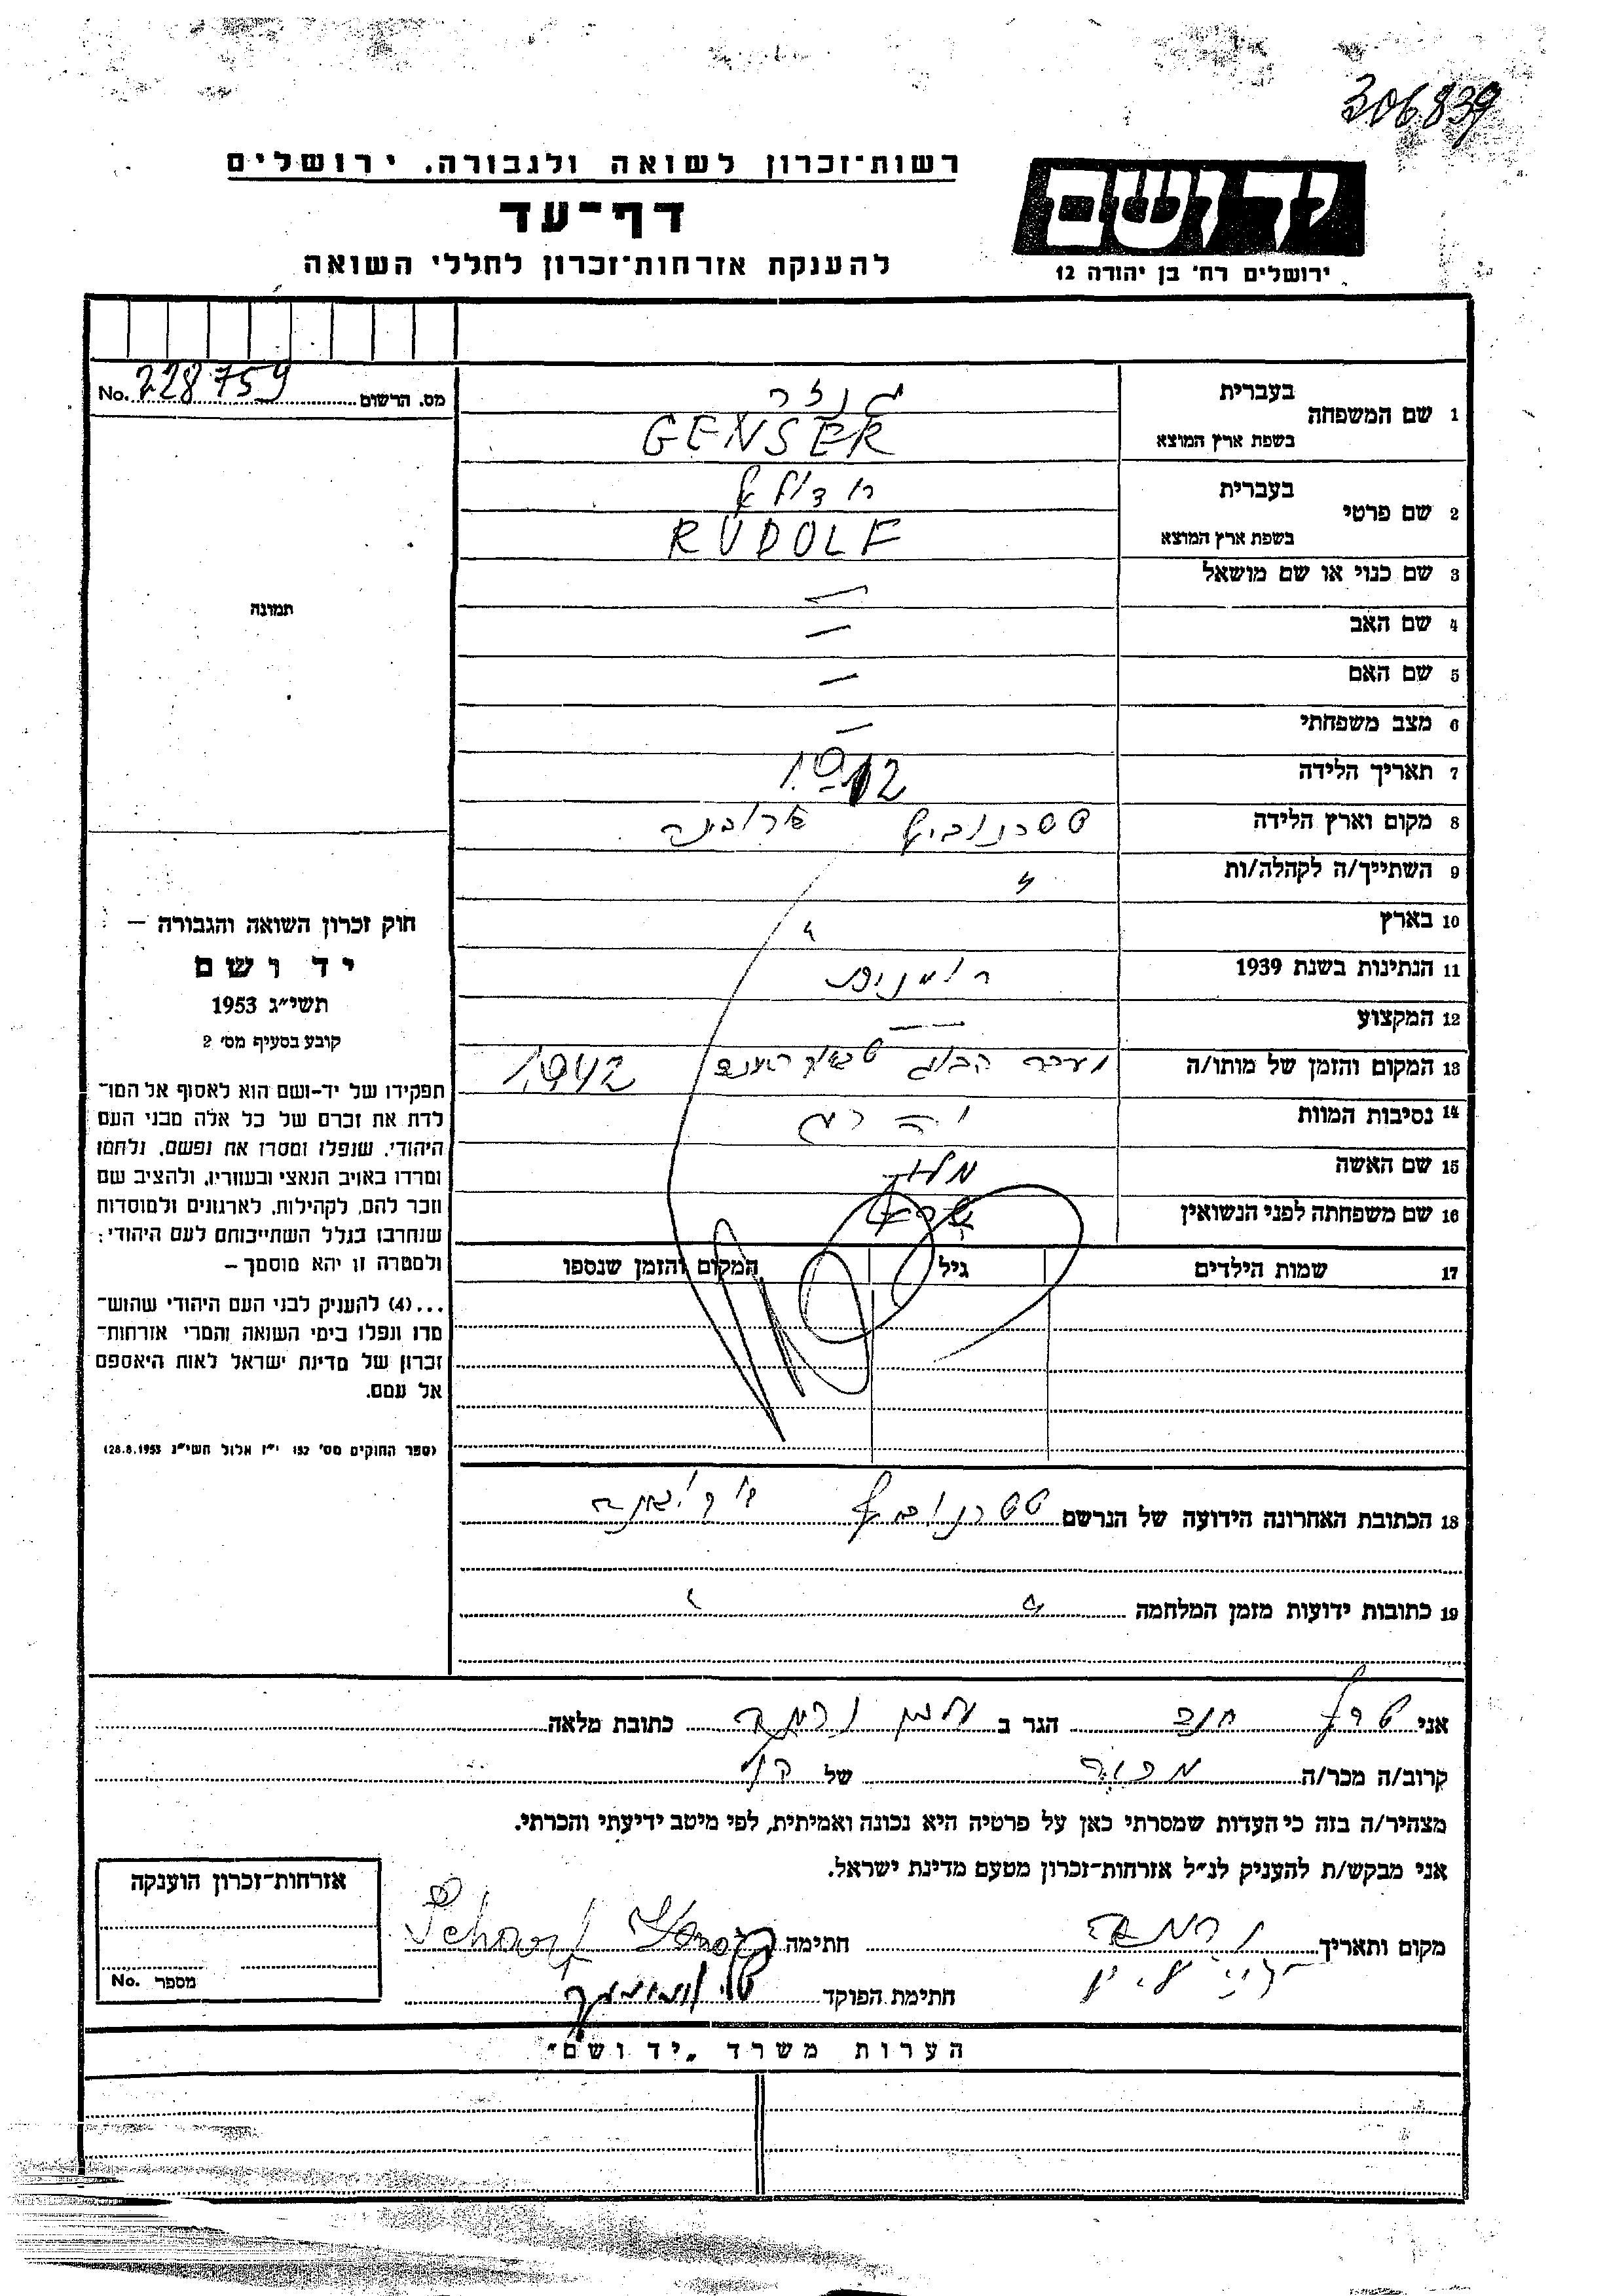 306839
רשות־זכרון לשואה ולגבורה, ירושלים
יד ושם
דף־עד
להענקת אזרחות־זכרון לחללי השואה
ירושלים רח' בן יהודה 12
מס. הרשום 228759 No.
1 שם המשפחה
בעברית גנזר
בשפת ארץ המוצא GENSER
2 שם פרטי
בעברית רודולף
בשפת ארץ המוצא RUDOLF
3 שם כנוי או שם מושאל —
4 שם האב —
5 שם האם —
6 מצב משפחתי —
7 תאריך הלידה 1912
8 מקום וארץ הלידה טשרנוביץ
9 השתייך/ה לקהלה/ות "
10 בארץ "
11 הנתינות בשנת 1939 רומנית
12 המקצוע —
13 המקום והזמן של מותו/ה מעבר הבוג 1942
14 נסיבות המוות
15 שם האשה
16 שם משפחתה לפני הנשואין
17 שמות הילדים גיל המקום והזמן שנספו
18 הכתובת האחרונה הידועה של הנרשם טשרנוביץ
19 כתובות ידועות מזמן המלחמה "
תמונה
חוק זכרון השואה והגבורה —
יד ושם
תשי״ג 1953
קובע בסעיף מס' 2
תפקידו של יד-ושם הוא לאסוף אל המו־
לדת את זכרם של כל אלה מבני העם
היהודי, שנפלו ומסרו את נפשם, נלחמו
ומרדו באויב הנאצי ובעוזריו, ולהציב שם
וזכר להם, לקהילות, לארגונים ולמוסדות
שנחרבו בגלל השתייכותם לעם היהודי;
ולמטרה זו יהא מוסמך –
...(4) להעניק לבני העם היהודי שהוש־
מדו ונפלו בימי השואה והמרי אזרחות־
זכרון של מדינת ישראל לאות היאספם
אל עמם.
(ספר החוקים מס' 132 י״ז אלול תשי״ג 28.8.1953)
אני שרף חנה הגר ב כתובת מלאה
קרוב/ה מכר/ה של
מצהיר/ה בזה כי העדות שמסרתי כאן על פרטיה היא נכונה ואמיתית, לפי מיטב ידיעתי והכרתי.
אני מבקש/ת להעניק לנ״ל אזרחות־זכרון מטעם מדינת ישראל.
מקום ותאריך חתימה Scharf
חתימת הפוקד
אזרחות־זכרון הוענקה
מספר No.
הערות משרד „יד ושם״